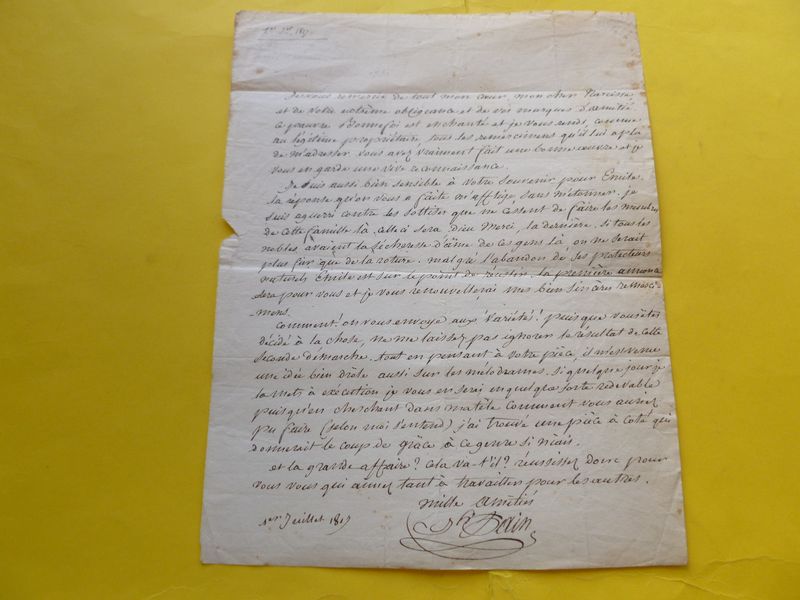 Je vous remercie de tout mon cœur, mon cher Narcisse
et de votre extrême obligeance et de vos marques d'amitié
Le pauvre Bonnefoi est enchanté et je vous rends, comme
au légitime propriétaire, tous les remerciemens qu'il lui a plu
de m'adresser vous avez vraiment fait une bonne œuvre et je
vous en garde une vive reconnaissance.
Je suis aussi bien sensible à votre souvenir pour Emile
la réponse qu'on vous a faite m'afflige sans m'étonner. je
suis aguerri contre les sottises que ne cessent de faire les membres
de cette famille là. celle ci sera, Dieu merci, la dernière. si tous les
nobles avaient la sécheresse d'âme de ces gens là, on ne serait
plus fier que de la roture. malgré l'abandon de ses protecteurs
naturels Emile est sur le point de réussir. la première
sera pour vous et je vous renouvellerai mes bien sincères remerci-
mens.
Comment! on vous envoye aux Variétés! puisque vous êtes
décidé à la chose, ne me laissez pas ignorer le résultat de cette
seconde démarche. tout en pensant à votre pièce, il m'est venu
une idée bien drôle aussi sur les mélodrames. si quelque jour je
la mets à exécution je vous en serai en quelque sorte redevable
puisqu'en cherchant dans ma tête comment vous auriez
pu faire (selon moi s'entend) j'ai trouvé une pièce à côté qui
donnerait le coup de grâce à ce genre si niais.
et la grande affaire? Cela va-t'il? réussissez donc pour
vous vous qui aimez tant à travailler pour les autres.
mille amitiés
1er Juillet 1817